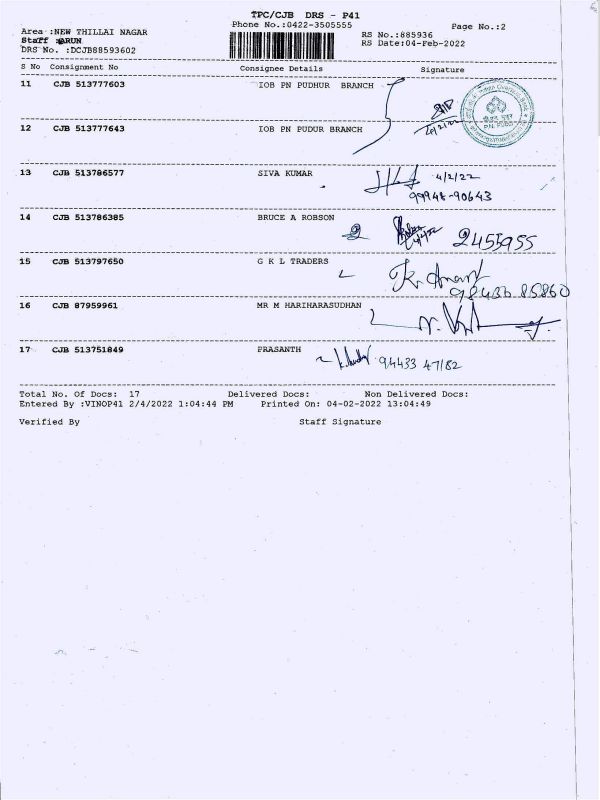 TPC/CJB DRS - P41
Phone No.:0422-3505555
Page No.:2
Area :NEW THILLAI NAGAR
Staff :ARUN
DRS No. :DCJB88593602
RS No.:885936
RS Date:04-Feb-2022
S No Consignment No Consignee Details Signature
11 CJB 513777603 IOB PN PUDHUR BRANCH
4/2/22
12 CJB 513777643 IOB PN PUDUR BRANCH
13 CJB 513786577 SIVA KUMAR 4/2/22
99948-90643
14 CJB 513786385 BRUCE A ROBSON
2 2455955
15 CJB 513797650 G K L TRADERS
98436 85860
16 CJB 87959961 MR M HARIHARASUDHAN
17 CJB 513751849 PRASANTH
94433 47182
Total No. Of Docs: 17 Delivered Docs: Non Delivered Docs:
Entered By :VINOP41 2/4/2022 1:04:44 PM Printed On: 04-02-2022 13:04:49
Verified By Staff Signature